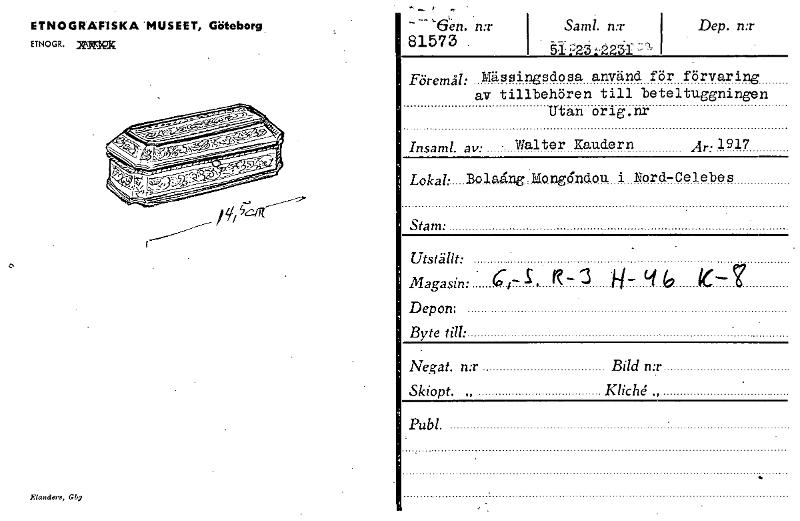 ETNOGRAFISKA MUSEET, Göteborg
ETNOGR.
14,5cm
Elanders, Gbg
Gen. n:r Saml. n:r Dep. n:r
81573 51.23.2231
Föremål: Mässingsdosa använd för förvaring
av tillbehören till beteltuggningen
Utan orig.nr
Insaml. av: Walter Kaudern År: 1917
Lokal: Bolaáng Mongóndou i Nord-Celebes
Stam:
Utställt:
Magasin: G,-S. R-3 H-46 K-8
Depon:
Byte till:
Negat. n:r Bild n:r
Skiopt. „ Kliché „
Publ.